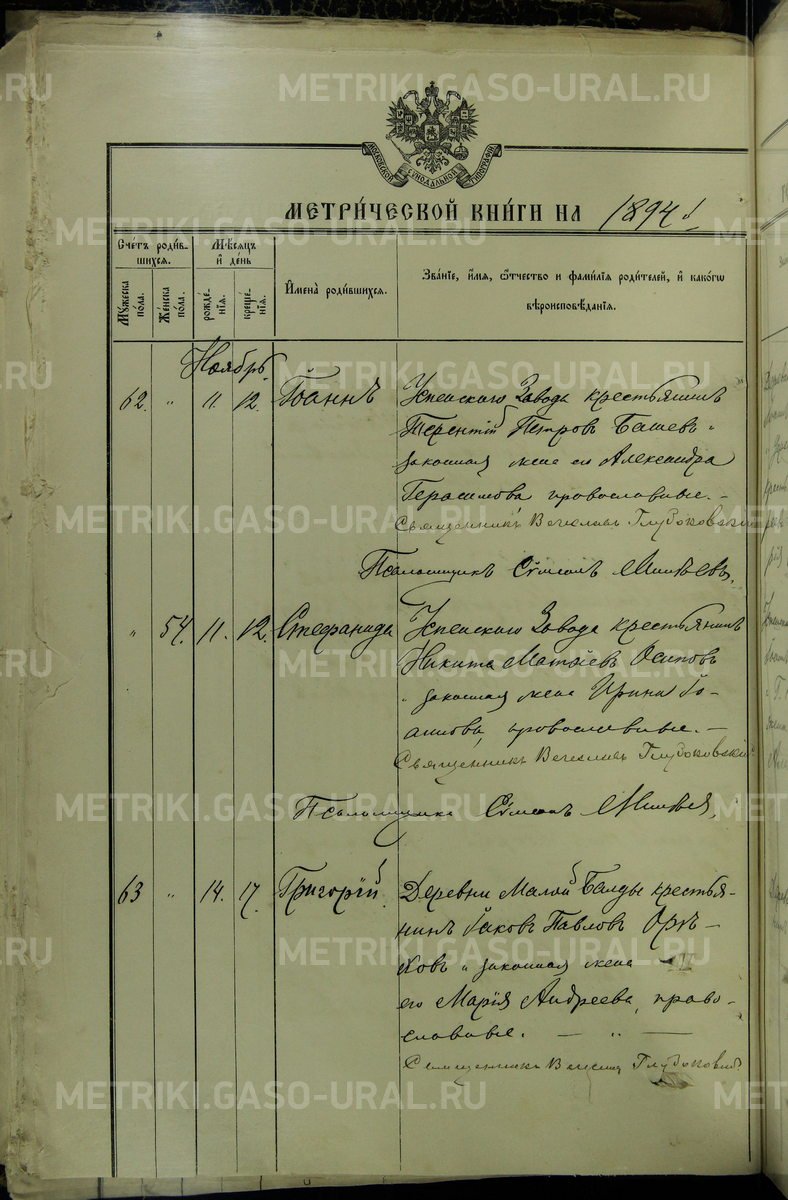 МОСКОВСКОЙ СУНОДАЛЬНОЙ ТИПОГРАФІИ
МЕТРИ́ЧЕСКОЙ КНИ́ГИ НА 1894 г.
Сче́тъ роди́в-
шихся.
Мѣ́сяцъ
и҆ де́нь
И҆мена̀ роди́вшихся.
Зва́нїе, и҆́мя, ѻ҆́тчество и҆ фами́лїя роди́телей, и҆ како́гѡ
вѣроисповѣ́данїя.
Мꙋ́жеска
по́ла.
Же́нска
по́ла.
рожде́-
нїя.
креще́-
нїя.
Ноябрь
62. " 11. 12. Іоаннъ
Успенскаго Завода крестьянинъ
Терентій Петровъ Башевъ и
законная жена его Александра
Герасимова православные. –
Священникъ Вячеславъ Глубоковскій
Псаломщикъ Сѵмеонъ
" 54. 11. 12. Стефанида
Успенскаго Завода крестьянинъ
Никита Матѳіевъ Осиповъ
и законная жена Ирина Іо-
аннова, православные. –
Священникъ Вячеславъ Глубоковскій
Псаломщикъ Сѵмеонъ
63 " 14. 17. Григорій
Деревни Малой Балды крестья-
нинъ Іаковъ Павловъ Орѣ-
ховъ и законная жена
его Марія Андреева, право-
славные. – " –
Священникъ Вячеславъ Глубоковскій
METRIKI.GASO-URAL.RU